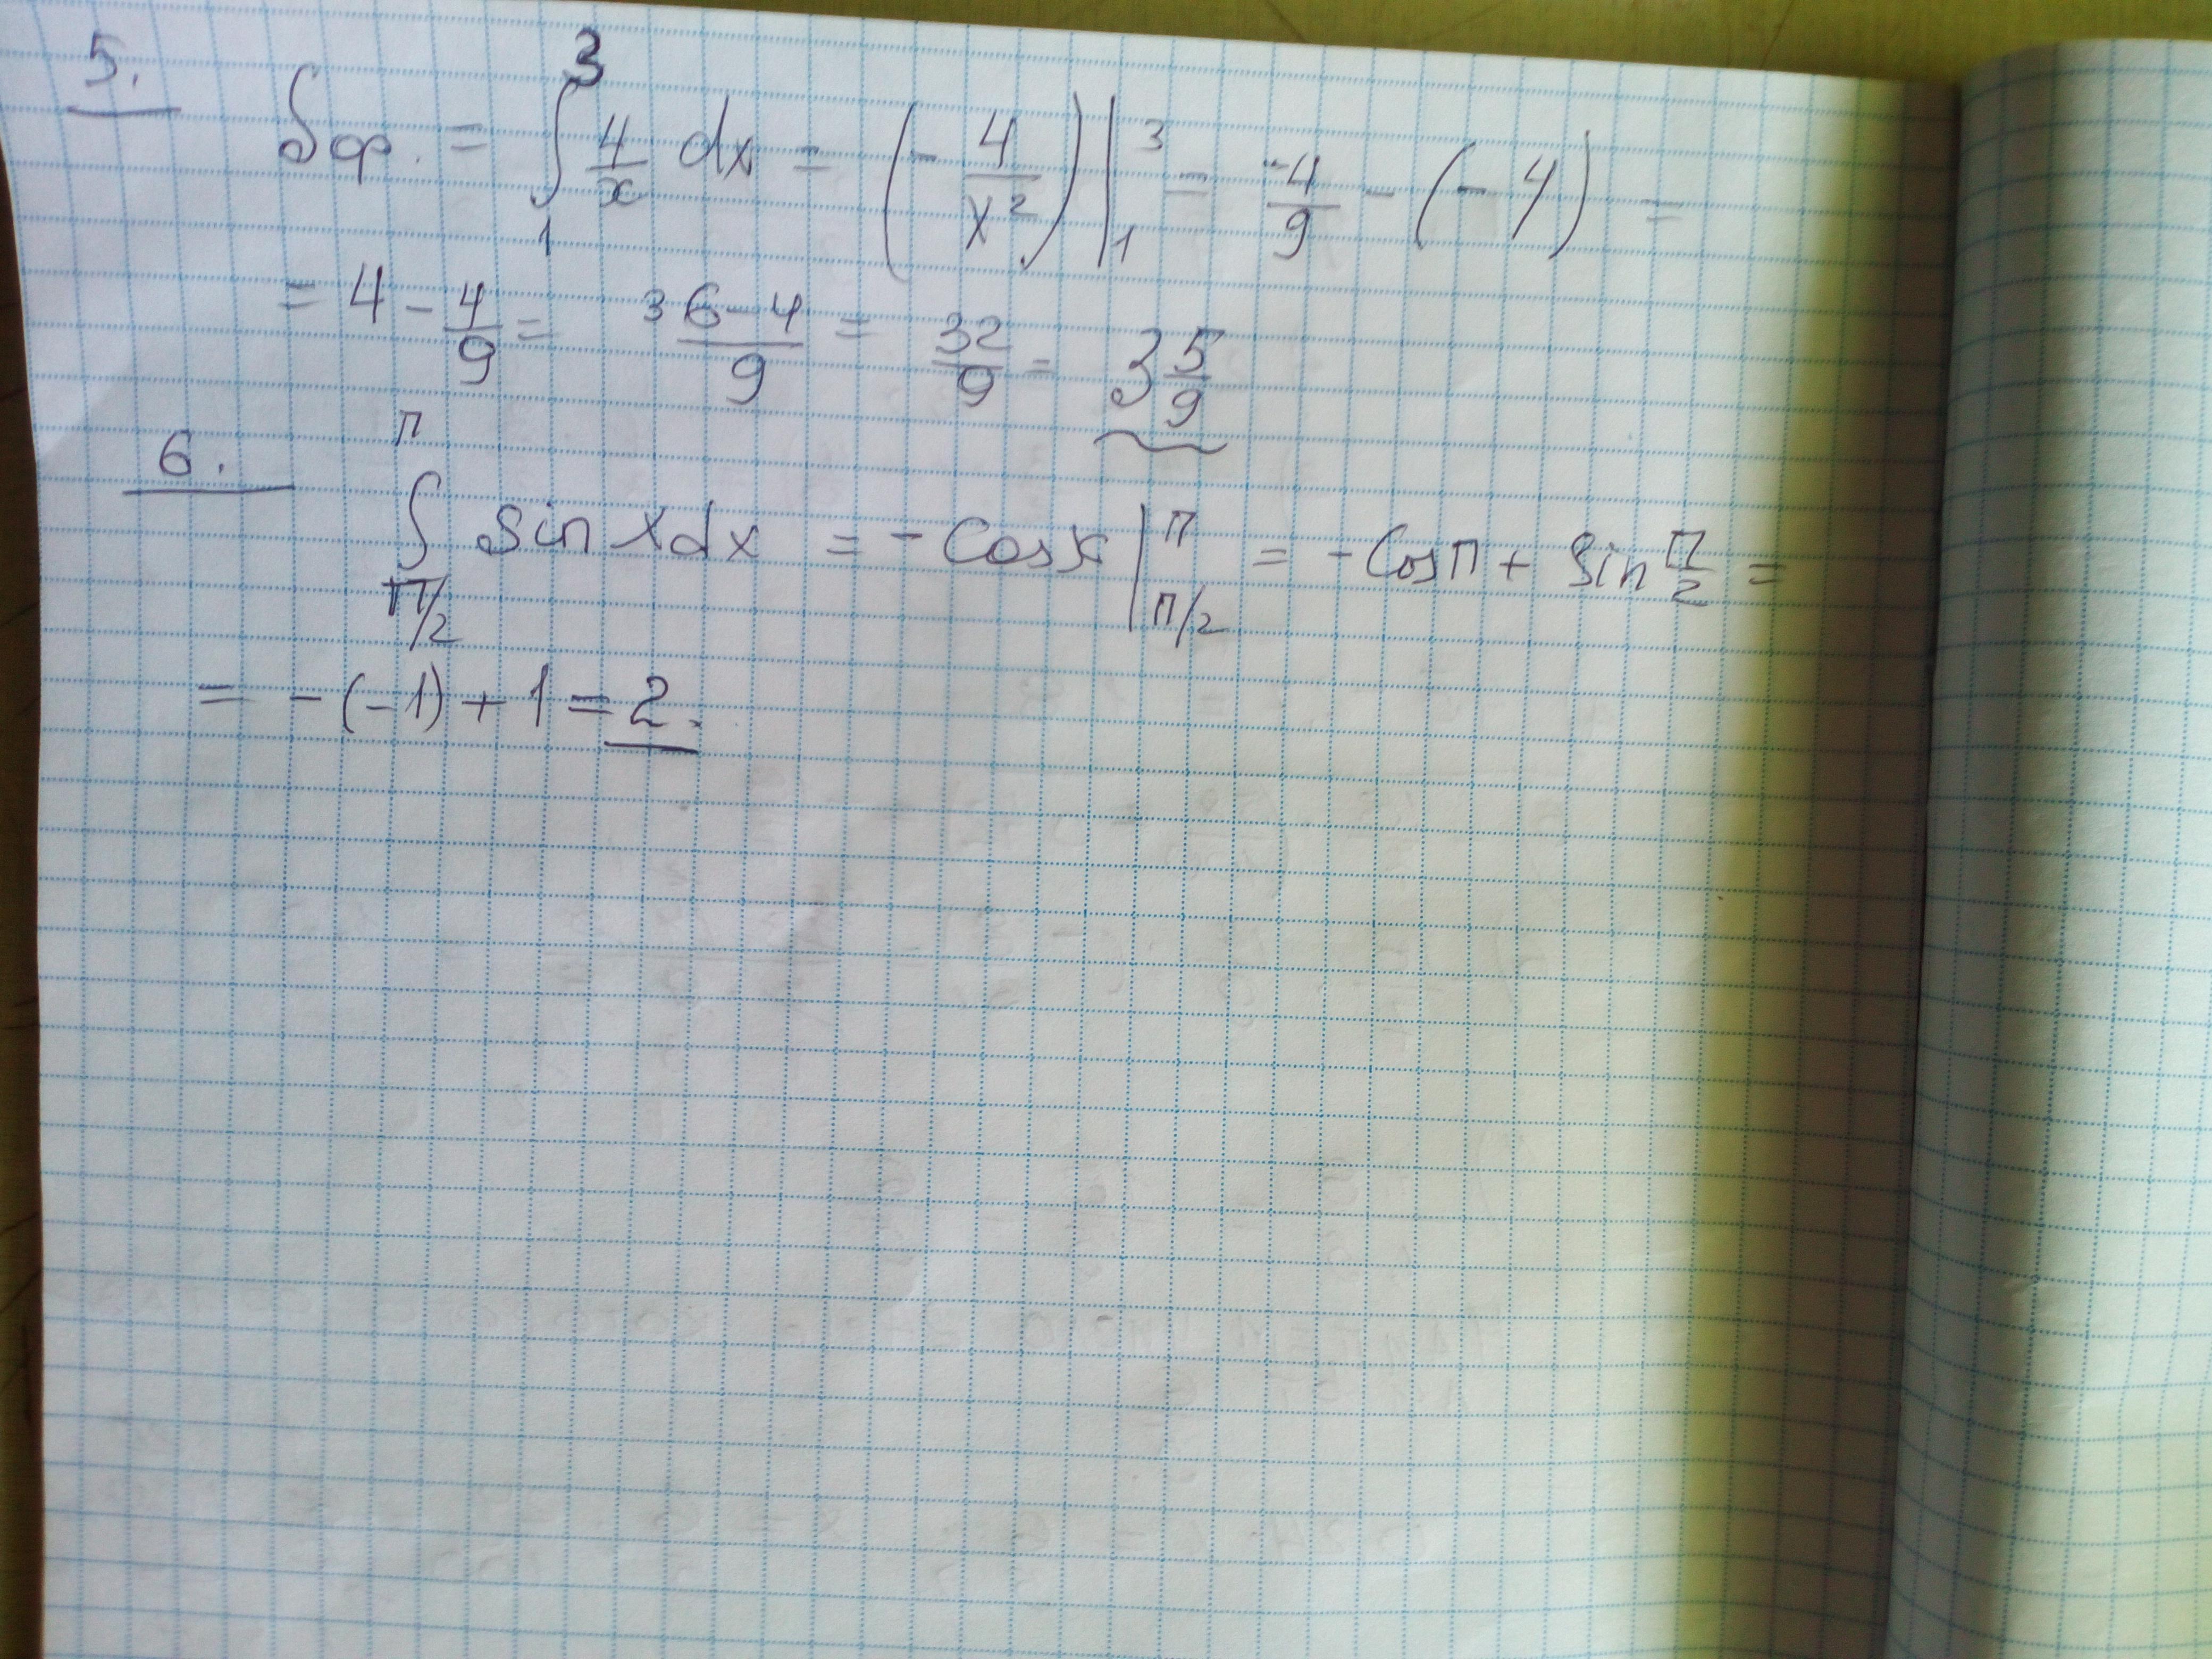 5. Sф. = ∫₁³ 4/x dx = (- 4/x²) |₁³ = -4/9 - (-4) =
= 4 - 4/9 = 36-4/9 = 32/9 = 3 5/9
6. ∫_{π/2}^{π} sin x dx = - cos x |_{π/2}^{π} = - cos π + sin π/2 =
= - (-1) + 1 = 2.